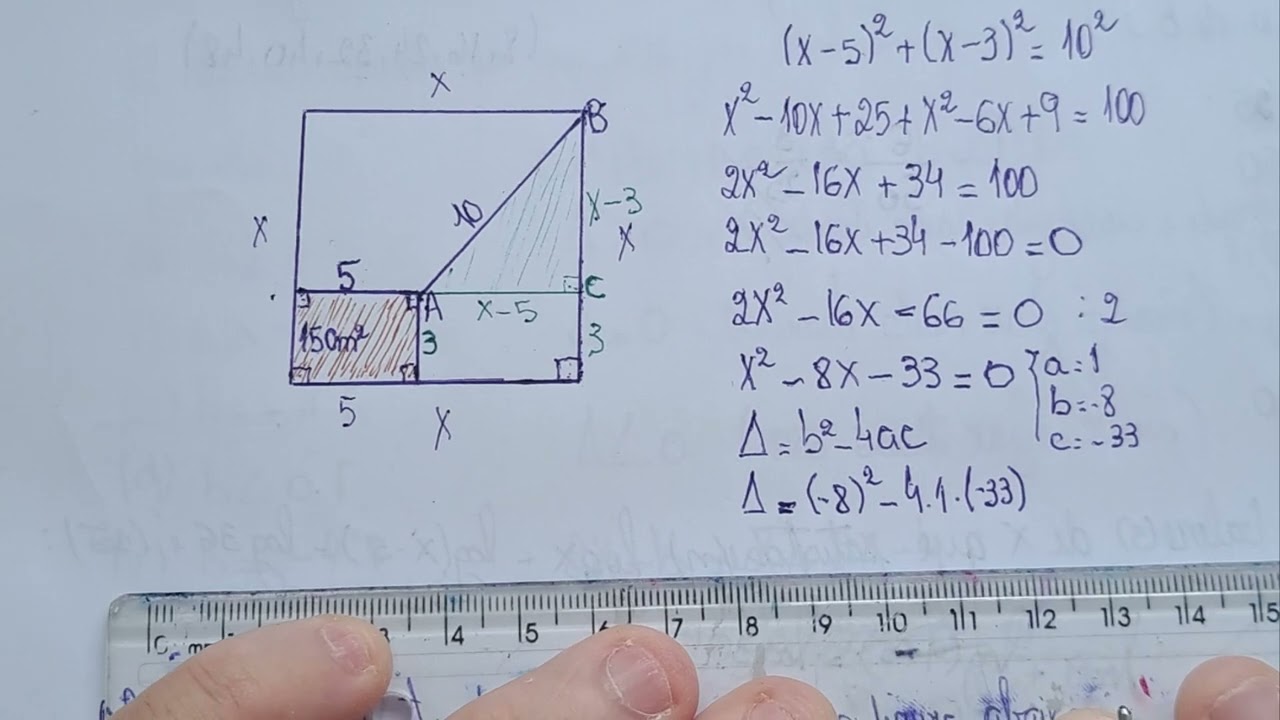 x
B
10
x-3
x
x
5
A
C
x-5
150m²
3
3
5
x
(x-5)²+(x-3)²= 10²
x²-10x+25+x²-6x+9=100
2x²-16x+34=100
2x²-16x+34-100=0
2x²-16x-66=0 :2
x²-8x-33=0 a=1
b=-8
c=-33
Δ=b²-4ac
Δ=(-8)²-4.1.(-33)
4 5 6 7 8 9 10 11 12 13 14 15